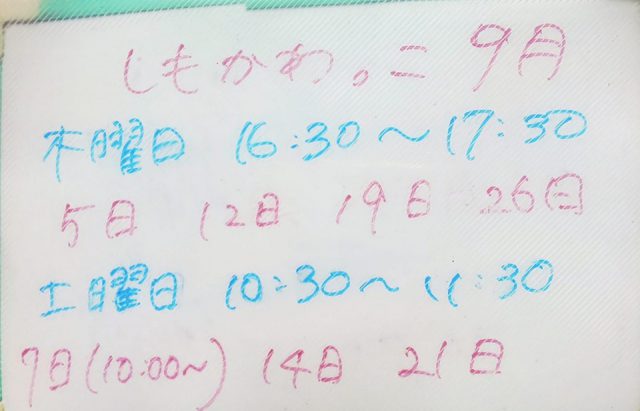 しもかわ。= 9月
木曜日 16:30～17:30
5日 12日 19日 26日
土曜日 10:30～11:30
7日(10:00～) 14日 21日